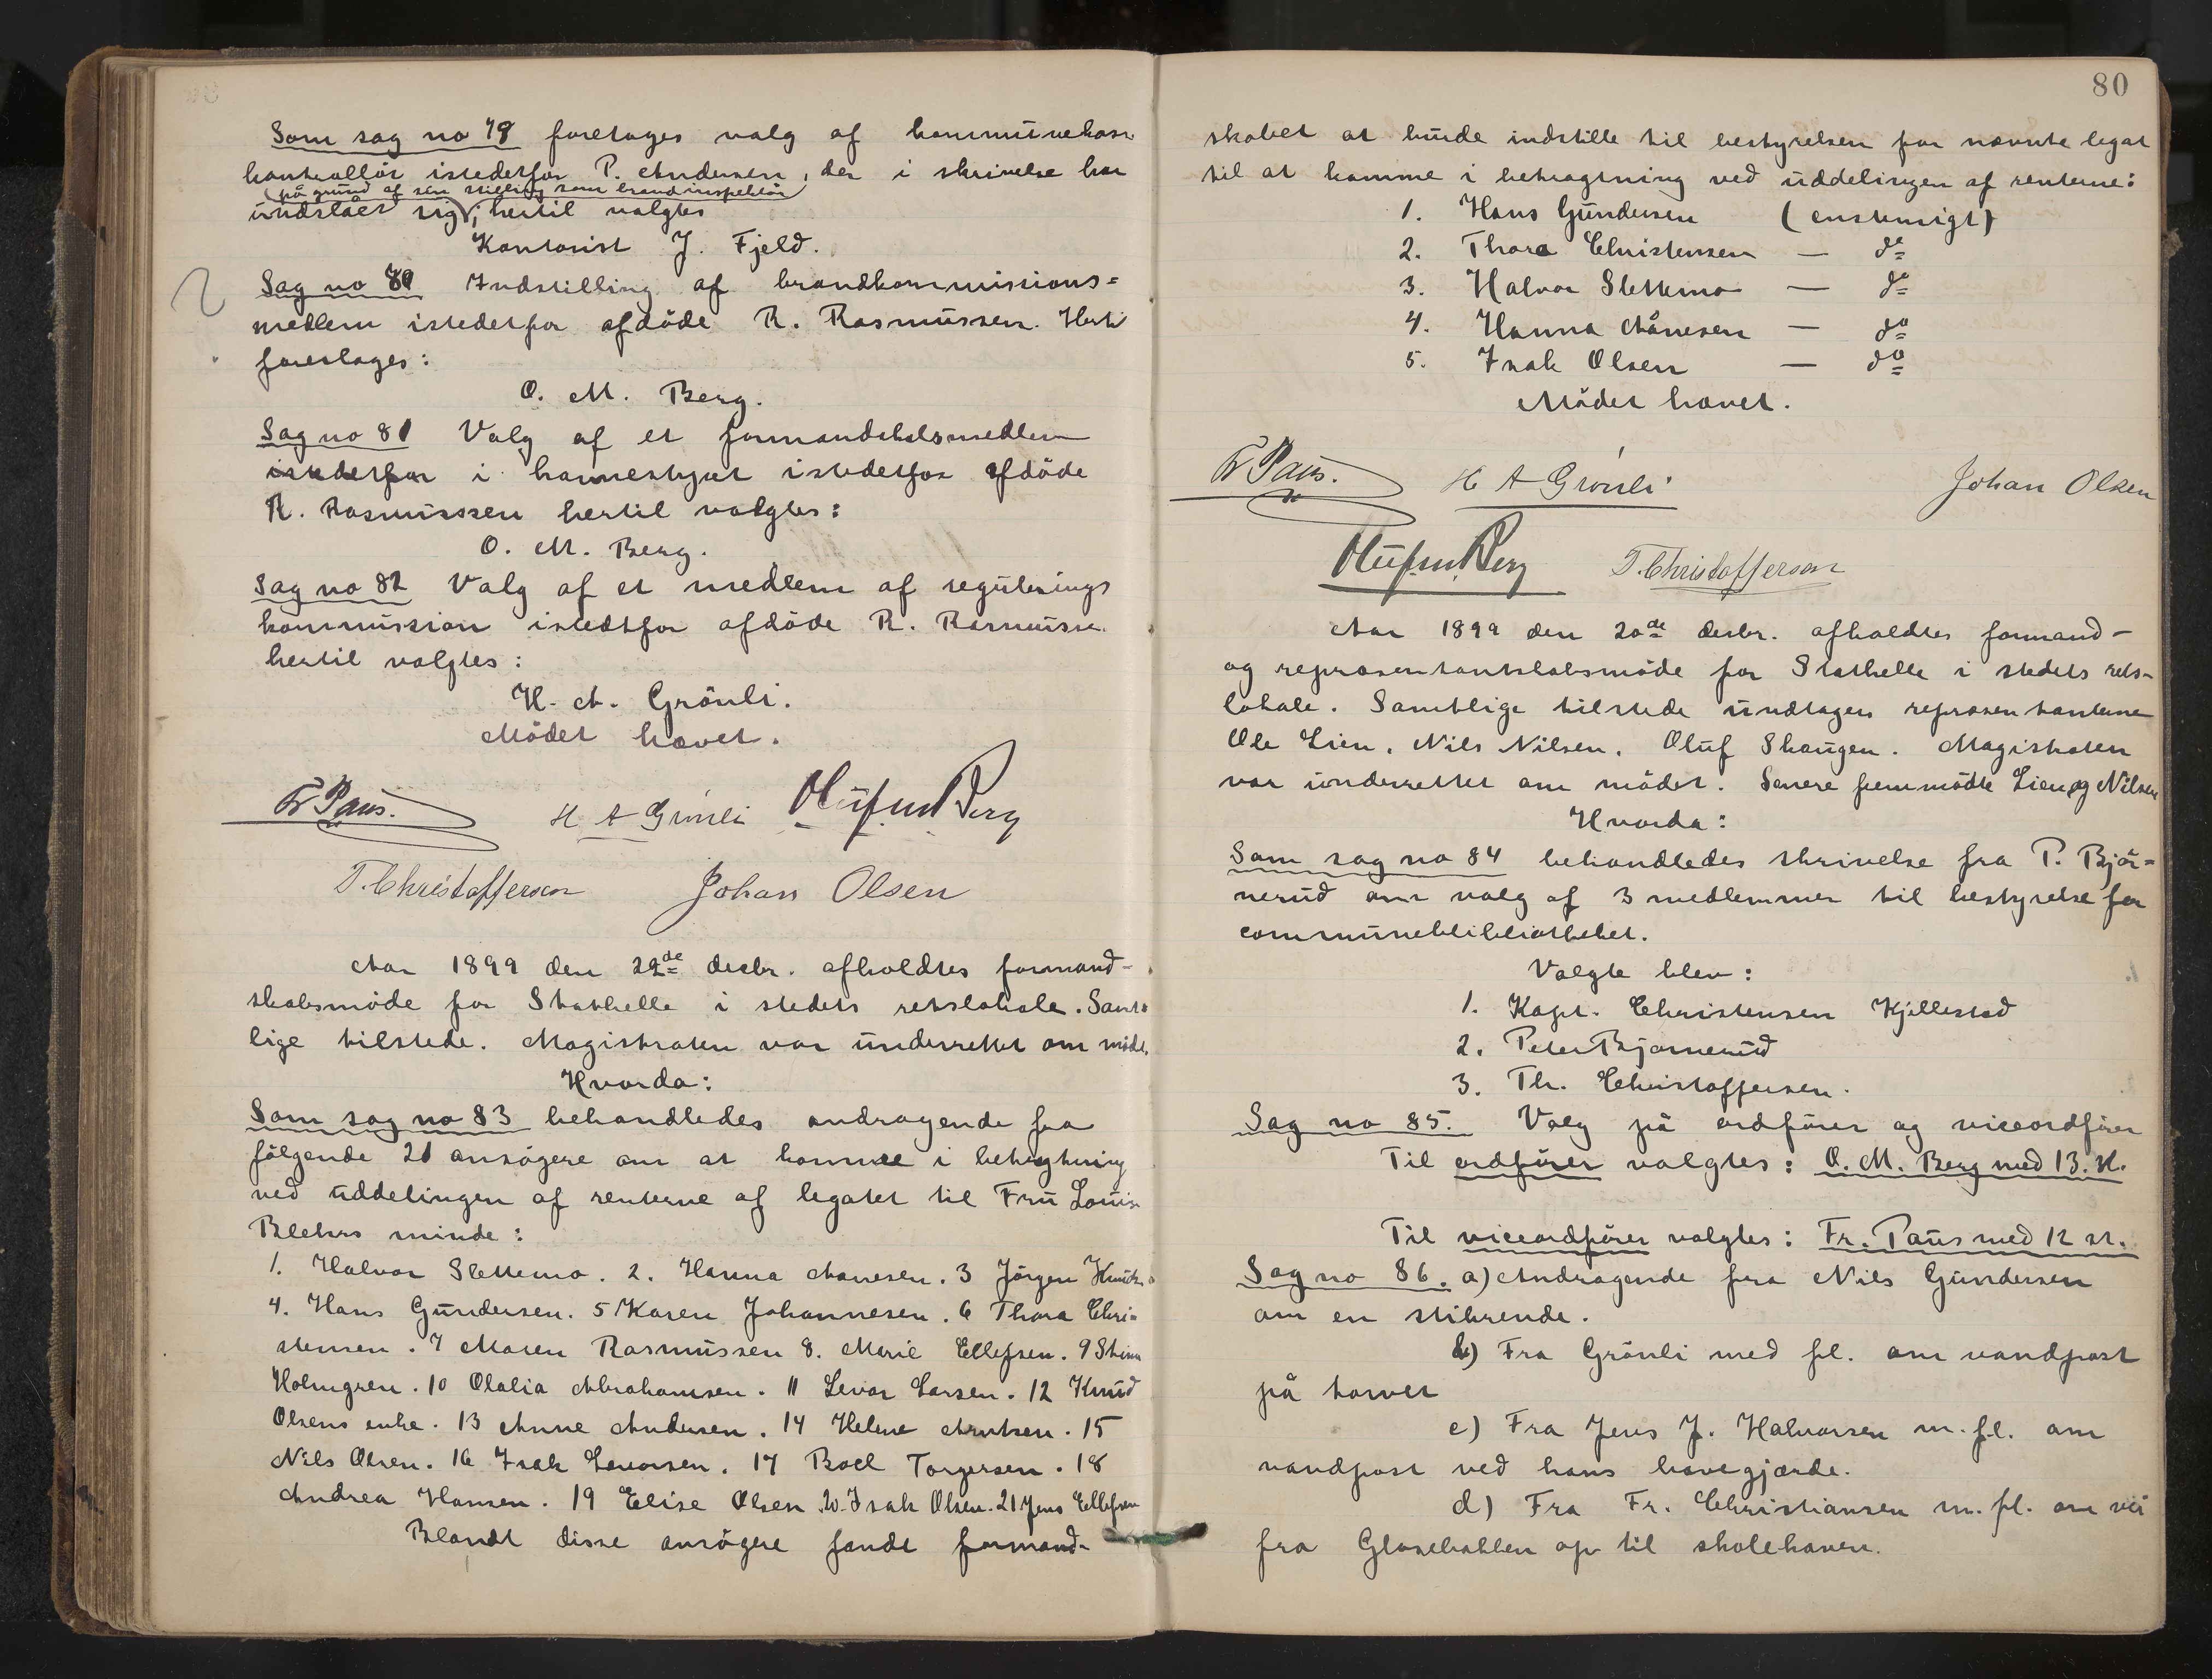 Som sag no 79 foretages valg af kommunekasse
kontrollör istedetfor P. Andersen, der i skrivelse har
(på grund af sin stilling som brandinspektör)
undslået sig; hertil valgtes
Kontorist J. Fjeld.
Sag no 80 Indstilling af brandkommissions=
medlem istedetfor afdöde R. Rasmussen. Hertil
foreslages:
O. M. Berg.
Sag no 81 Valg af et formandskabsmedlem
istedetfor i havnestyret istedetfor afdöde
R. Rasmussen hertil valgtes:
O. M. Berg.
Sag no 82 Valg af et medlem af regulerings
kommission istedtfor afdöde R. Rasmussen
hertil valgtes:
H. A. Grönli.
Mödet hævet.
Fr Paus. H A Grönli Oluf M Berg
T. Christoffersen Johan Olsen
Aar 1899 den 22de desbr. afholdtes formand-
skabsmöde for Stathelle i stedets retslokale. Samt=
lige tilstede. Magistraten var underrettet om mödet.
Hvorda:
Som sag no 83 behandledes andragende fra
fölgende 21 ansögere om at komme i betragtning
ved uddelingen af renterne af legatet til Fru Louise
Blehrs minde:
1. Halvor Slettemo. 2. Hanna Aanesen. 3 Jörgen Knudsen
4. Hans Gundersen. 5 Karen Johannesen. 6 Thora Chri=
stensen. 7 Maren Rasmussen 8. Marie Ellefsen. 9 Stina
Holmgren. 10 Olalia Abrahamsen. 11 Levor Larsen. 12 Knud
Olsens enke. 13 Anne Andersen. 14 Helene Arntsen. 15
Nils Olsen. 16 Isak Levorsen. 17 Boel Torgersen. 18
Andrea Hansen. 19 Elise Olsen 20. Isak Olsen. 21 Jens Ellefsen
Blandt disse ansögere fandt formand-
80
skabet at burde indstille til bestyrelsen for nævnte legat
til at komme i betragtning ved uddelingen af renterne:
1. Hans Gundersen (enstemigt)
2. Thora Christensen — do
3. Halvor Slettemo — do
4. Hanna Aånesen — do
5. Isak Olsen — do
Mödet hævet.
Fr Paus. H A Grönli Johan Olsen
Oluf M Berg T. Christoffersen
Aar 1899 den 20de desbr. afholdtes formand-
og repræsentantskabsmöde for Stathelle i stedets rets-
lokale. Samtlige tilstede undtagen repræsentanterne
Ole Lien, Nils Nilsen, Oluf Skaugen. Magistraten
var underrettet om mödet. Senere fremmödte Lien og Nilsen
Hvorda:
Som sag no 84 behandledes skrivelse fra P. Björ=
nerud om valg af 3 medlemmer til bestyrelse for
communebibliotheket.
Valgte blev:
1. Kapt. Christensen Kjellestad
2. Peter Bjørnerud
3. Th. Christoffersen.
Sag no 85. Valg på ordförer og viceordförer
Til ordförer valgtes: O. M. Berg med 13. st.
Til viceordförer valgtes: Fr. Paus med 12 st.
Sag no 86. a) Andragende fra Nils Gundersen
om en stikrende.
b) Fra Grönli med fl. om vandpost
på torvet
c) Fra Jens J. Halvorsen m. fl. om
vandpost ved hans havegjærde.
d) Fra Fr. Christiansen m. fl. om vei
fra Glosebakken op til skolehaven.